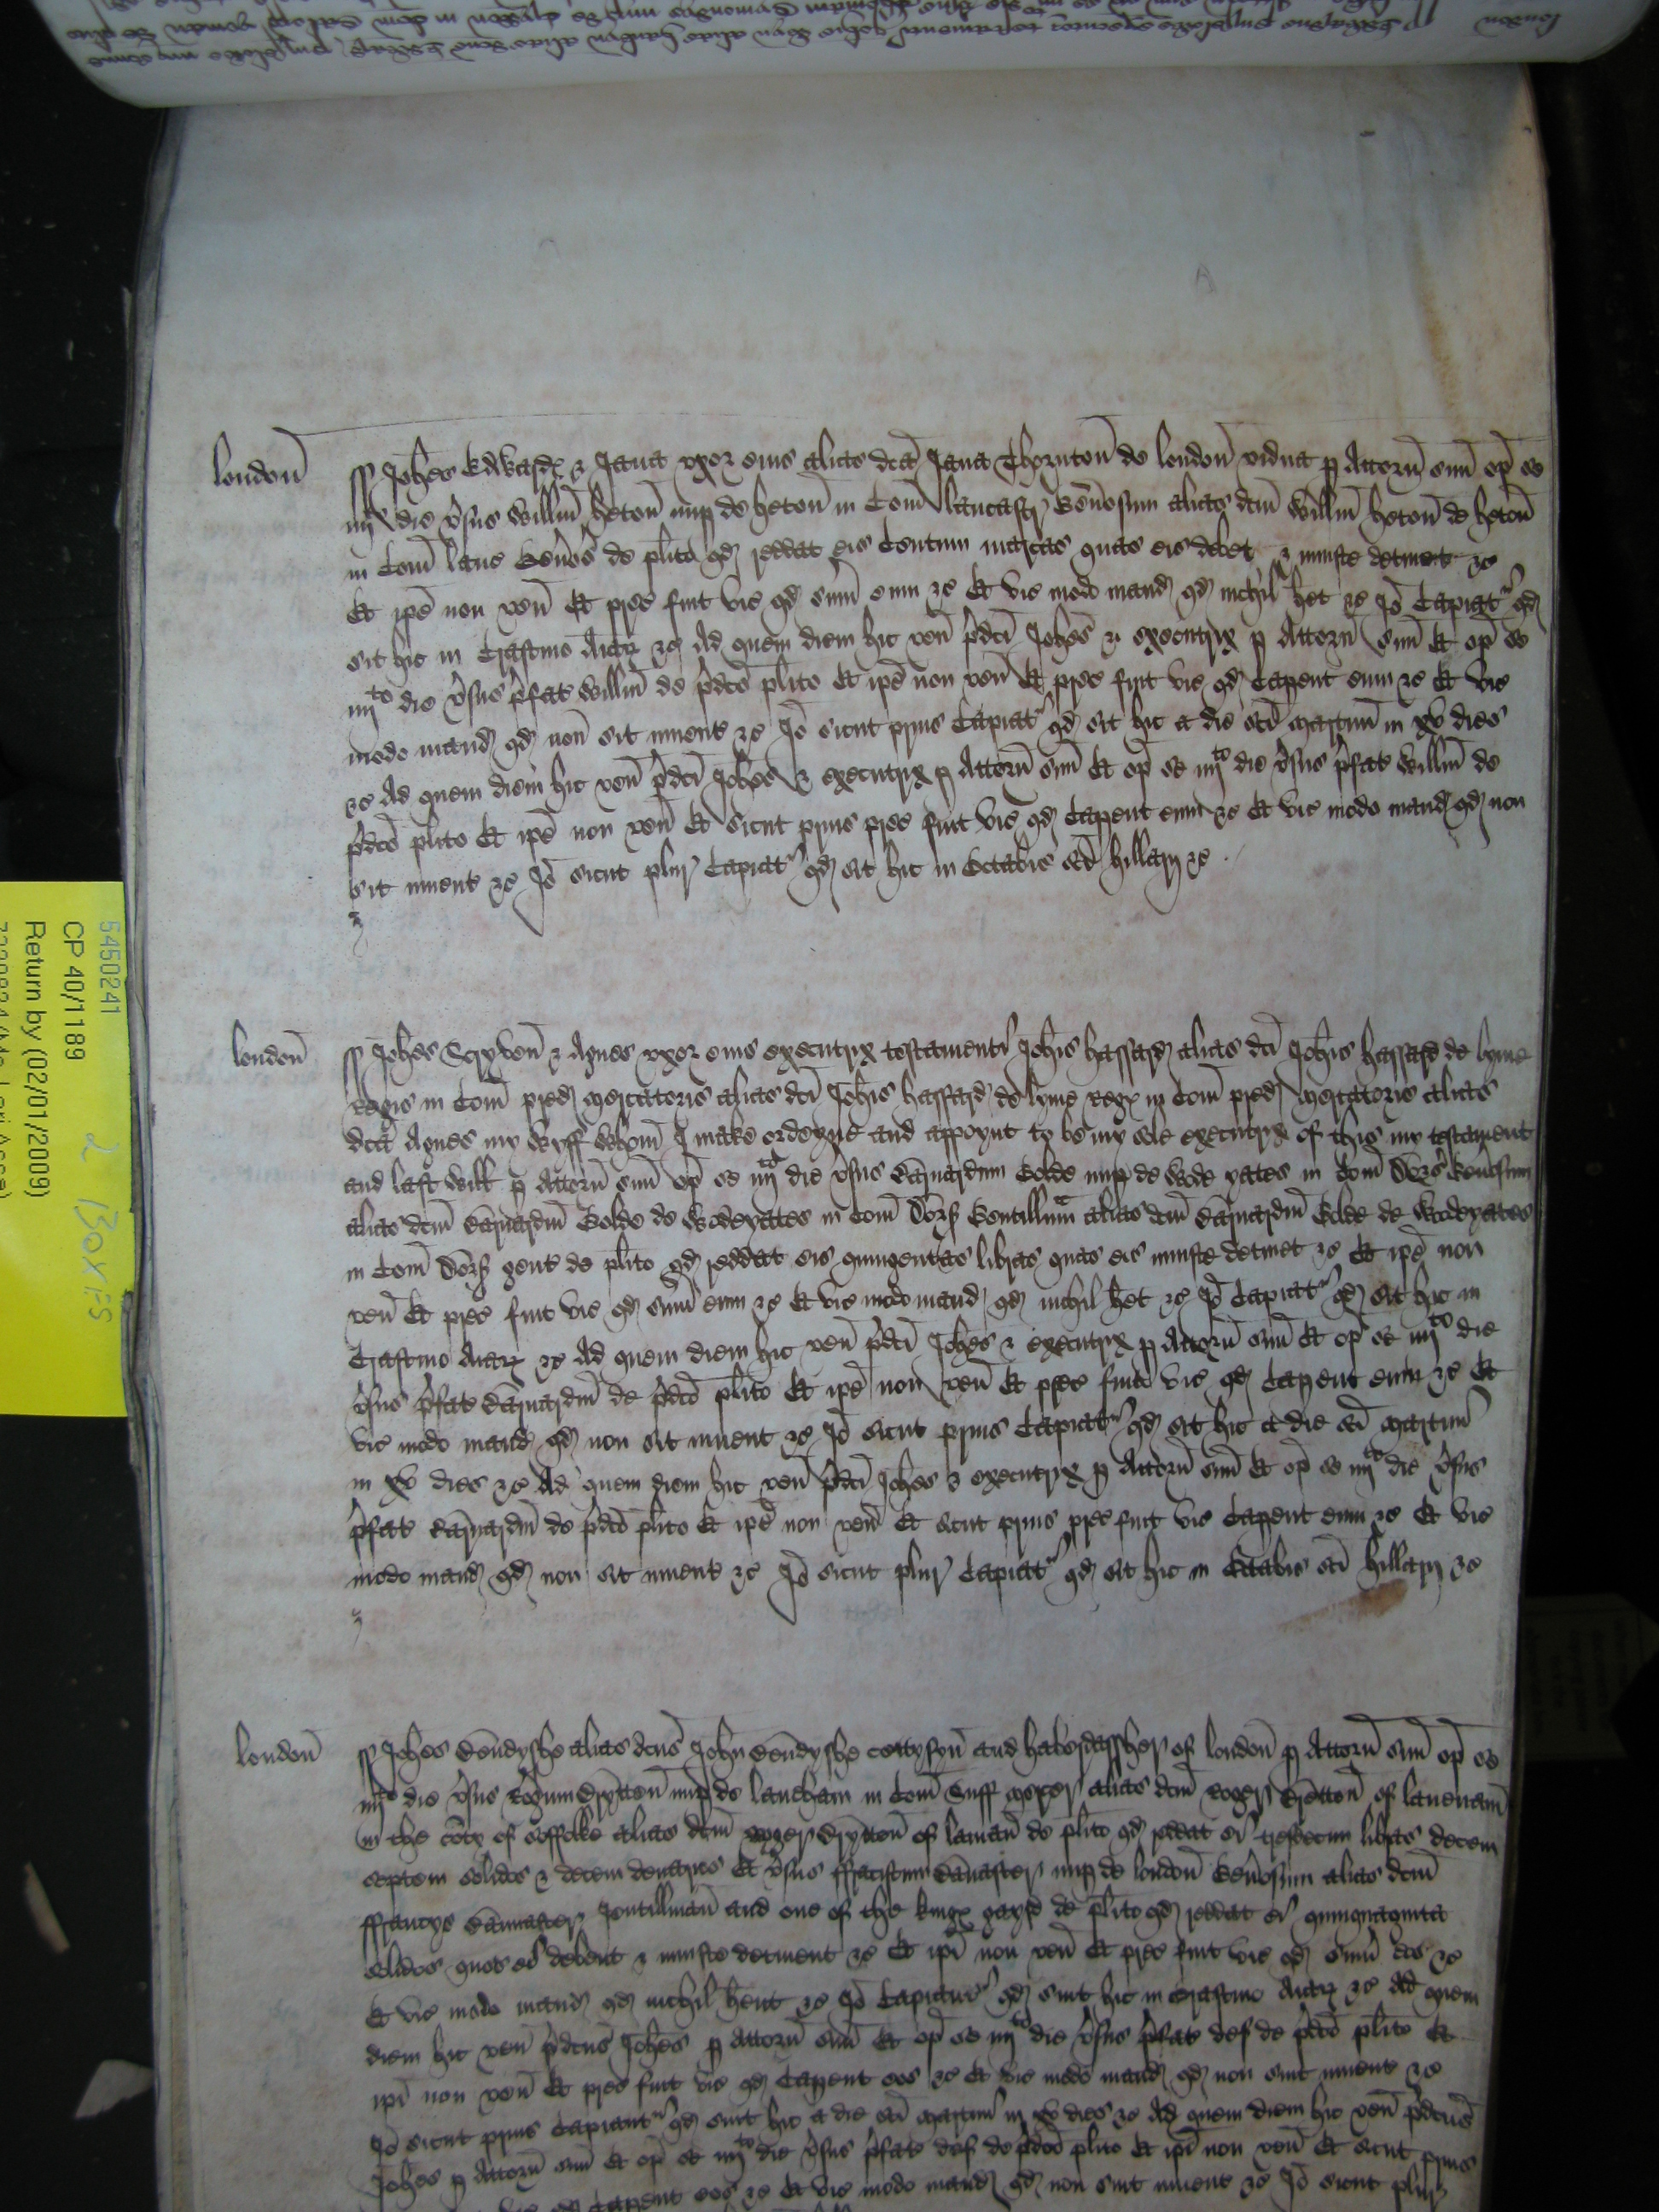 london̄ ss Joh̄es Edwardȝ & Jana vxor eius alias dc̄a Jana Thornton̄ de london̄ vidua p Attorn̄ suū op̄ se
iiij die vˀsus Will̄m heton̄ nup de heton̄ in Com̄ lancastr̄ Gen̄osum alias dc̄m Will̄m heton̄ de heton̄
in Com̄ lanc Gen̄os̄ de pl̄ito qd reddat eis Centum marcas quas eis debet & iniuste detinet &c
Et ip̄e non ven̄ Et prec̄ fuit vic̄ qd sum̄ eum &c Et vic̄ modo mand qd nichil h̄et &c Jō Capiatʳ qd
sit hic in Crastino Aīaȝ &c Ad quem diem hic ven̄ p̄dc̄i Joh̄es & executrix p Attorn̄ suū Et op̄ se
iiijto die vˀsus p̄fat Will̄m de p̄dc̄o pl̄ito Et ip̄e non ven̄ Et prec̄ fuit vic̄ qd Caperet eum &c Et vic̄
modo mand qd non sit inuent &c Jō sicut prius Capiatʳ qd sit hic a die sc̄i Martini in xv dies
&c Ad quem diem hic ven̄ p̄dc̄i Joh̄es & executrix p Attorn̄ suū Et op̄ se iiijto die vˀsus p̄fat Will̄m de
p̄dc̄o pl̄ito Et ip̄e non ven̄ Et sicut prius prec̄ fuit vic̄ qd Caperet eum &c Et vic̄ modo mand qd non
sit inuent &c Jō sicut plur̄ Capiatʳ qd sit hic in Octabis sc̄i hillarij &c
london̄ ss Joh̄es Scryven̄ & Agnes vxor eius executrix testamenti Joh̄is hassard alias dc̄i Joh̄is hassard de lyme
Regis in Com̄ pred Mercatoris alias dc̄i Joh̄is hassard de lyme Regȝ in Com̄ pred Mercatoris alias
dc̄a Agnes my Wyff Whom̄ I make ordeyne and appoynt to be my sole executrix of this my testament
and last Will p Attorn̄ suū op̄ se iiijto die vˀsus Barnardinum Golde nup de Wode yates in Com̄ Dors̄ Gen̄osum
alias dc̄m Barnardin̄ Golde de Wodeyates in Com̄ Dors̄ Gentillman̄ alias dc̄m Barnardin̄ Golde de Wodeyates
in Com̄ Dors̄ gent de pl̄ito qd reddat eis quingentas libras quas eis iniuste detinet &c Et ip̄e non
ven̄ Et prec̄ fuit vic̄ qd sum̄ eum &c Et vic̄ modo mand qd nichil h̄et &c Jō Capiatʳ qd sit hic in
Crastino Aīaȝ &c Ad quem diem hic ven̄ p̄dc̄i Joh̄es & executrix p Attorn̄ suū Et op̄ se iiijto die
vˀsus p̄fat Barnardin̄ de p̄dc̄o pl̄ito Et ip̄e non ven̄ Et prec̄ fuit vic̄ qd Caperet eum &c Et
vic̄ modo mand qd non sit inuent &c Jō sicut prius Capiatʳ qd sit hic a die sc̄i Martini
in xv dies &c Ad quem diem hic ven̄ p̄dc̄i Joh̄es & executrix p Attorn̄ suū Et op̄ se iiijto die vˀsus
p̄fat Barnardin̄ de p̄dc̄o pl̄ito Et ip̄e non ven̄ Et sicut prius prec̄ fuit vic̄ Caperet eum &c Et vic̄
modo mand qd non sit inuent &c Jō sicut plur̄ Capiatʳ qd sit hic in Octabis sc̄i hillarij &c
london̄ ss Joh̄es Bendysshe alias dc̄us John Bendysshe cetysyn̄ and haberdassher of london̄ p Attorn̄ suū op̄ se
iiijto die vˀsus Rog̃um Brytten̄ nup de lavenham in Com̄ Suff mercer alias dc̄m Roger Bretton̄ of lavenam̄
in the coūty of Suffolke alias dc̄m Roger Brytton̄ of laman̄ de pl̄ito qd reddat ei tresdecim libras decem
septem solidos & decem denarios Et vˀsus ffranciscum Banaster nup de london̄ Gen̄osum alias dc̄m
ffrancys Bannaster Jentillman̄ and one of the kingȝ gard de pl̄ito qd reddat ei quinquaginta
solidos quos ei debent & iniuste detinent &c Et ip̄i non ven̄ Et prec̄ fuit vic̄ qd sum̄ eos &c
Et vic̄ modo mand qd nichil h̄ent &c Jō Capiantʳ qd sint hic in Crastino Aīaȝ &c Ad quem
diem hic ven̄ p̄dc̄us Joh̄es p Attorn̄ suū Et op̄ se iiijto die vˀsus p̄fat def de p̄dc̄o pl̄ito Et
ip̄i non ven̄ Et prec̄ fuit vic̄ qd Caperet eos &c Et vic̄ modo mand qd non sint inuent &c
Jō sicut prius Capiantʳ qd sint hic a die sc̄i Martini in xv dies &c Ad quem diem hic ven̄ p̄dc̄us
Joh̄es p Attorn̄ suū Et op̄ se iiijto die vˀsus p̄fat def de p̄dc̄o pl̄ito Et ip̄i non ven̄ Et sicut prius
vic̄ qd Caperet eos &c Et vic̄ modo mand qd non sint inuent &c Jō sicut plur̄
5450241
CP 40/1189
Return by (02/01/2009)
2 BOXES